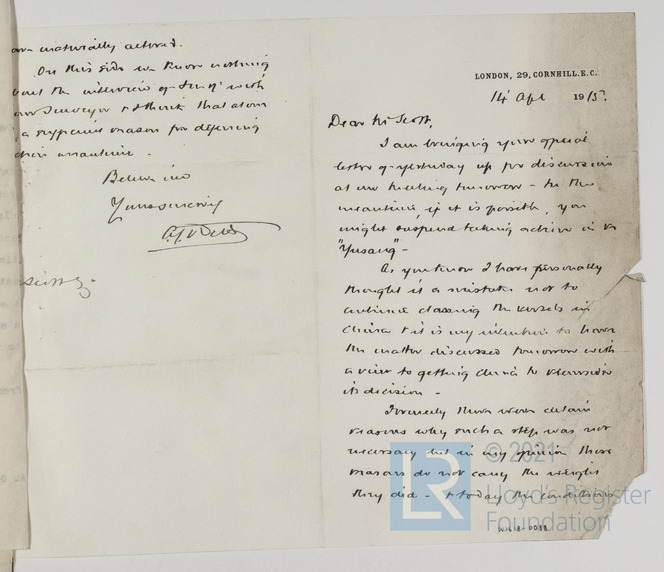 LONDON, 29, CORNHILL. E.C.
14 Apl 1915.
Dear Mr Scott,
I am bringing your special
letter of yesterday up for discussion
at our meeting tomorrow - In the
meantime, if it is possible, you
might suspend taking action in re
"Yusang" -
As you know I have personally
thought it a mistake not to
continue classing the vessels in
China & it is my intention to have
the matter discussed tomorrow with
a view to getting to reconsider
its decision -
Formerly there were certain
reasons why such a step was not
necessary but in my opinion those
reasons do not carry the weight
they did - & today the conditions
have materially altered.
On this side we know nothing
about the interview of with
our Surveyor & I think that alone
a sufficient reason for deferring
their
Believe me
Yours sincerely
Scott Esq.
© 2021
Lloyd's Register
Foundation
LR